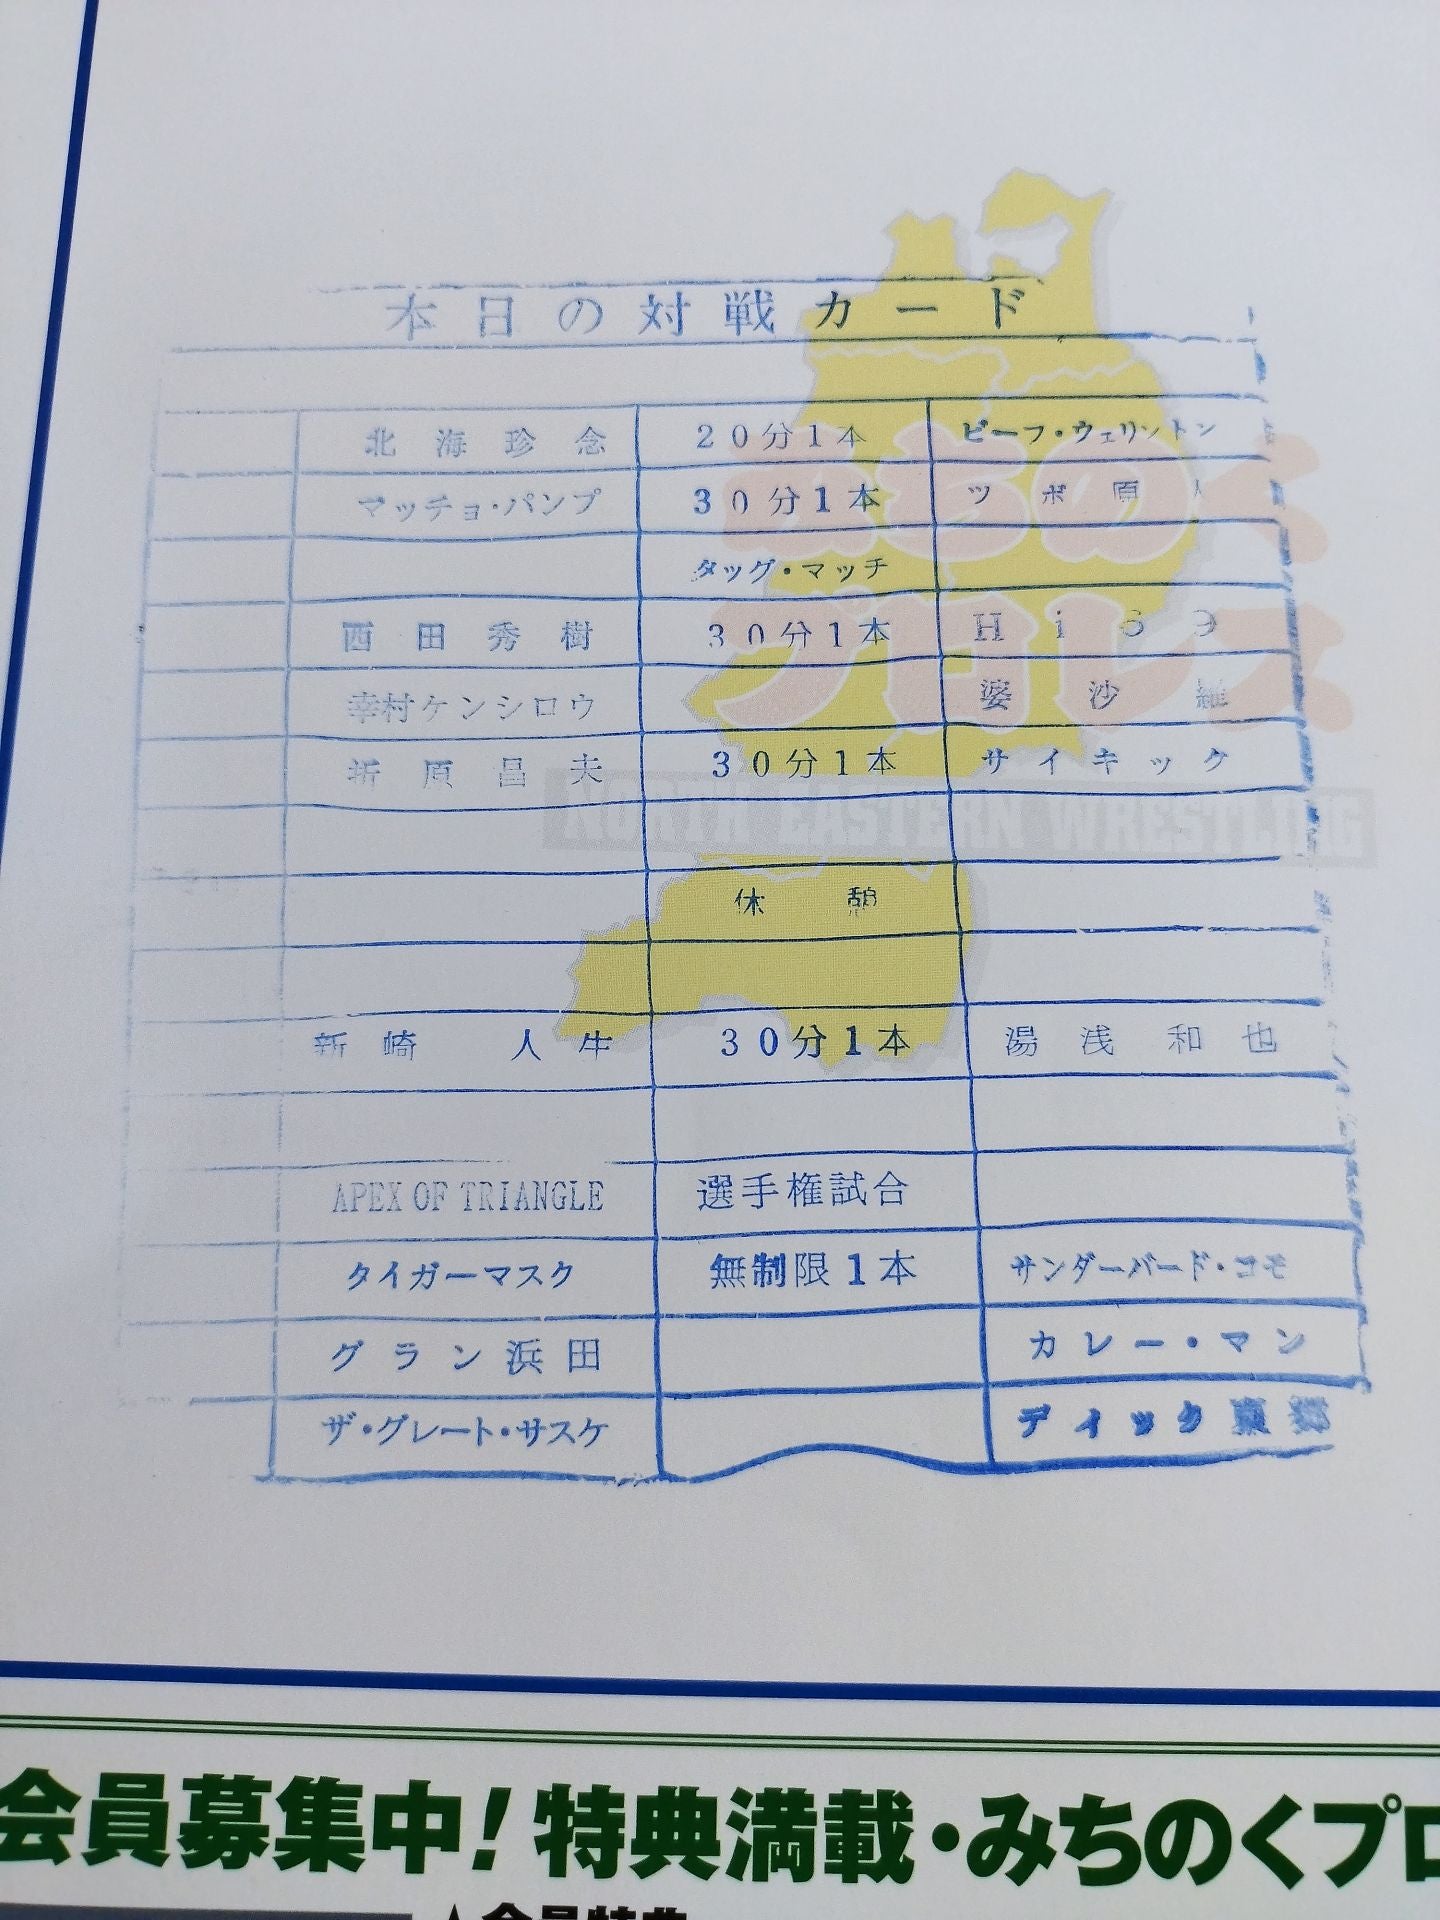 本日の対戦カード
北海珍念 20分1本 ビーフ・ウェリントン
マッチョ・パンプ 30分1本 ツボ原人
タッグ・マッチ
西田秀樹 30分1本 Hi69
幸村ケンシロウ 婆沙羅
折原昌夫 30分1本 サイキック
休憩
新崎人生 30分1本 湯浅和也
APEX OF TRIANGLE 選手権試合
タイガーマスク 無制限1本 サンダーバード・コモ
グラン浜田 カレー・マン
ザ・グレート・サスケ ディック東郷
みちのく
プロレス
NORTH EASTERN WRESTLING
会員募集中!特典満載・みちのくプロ
★会員特典